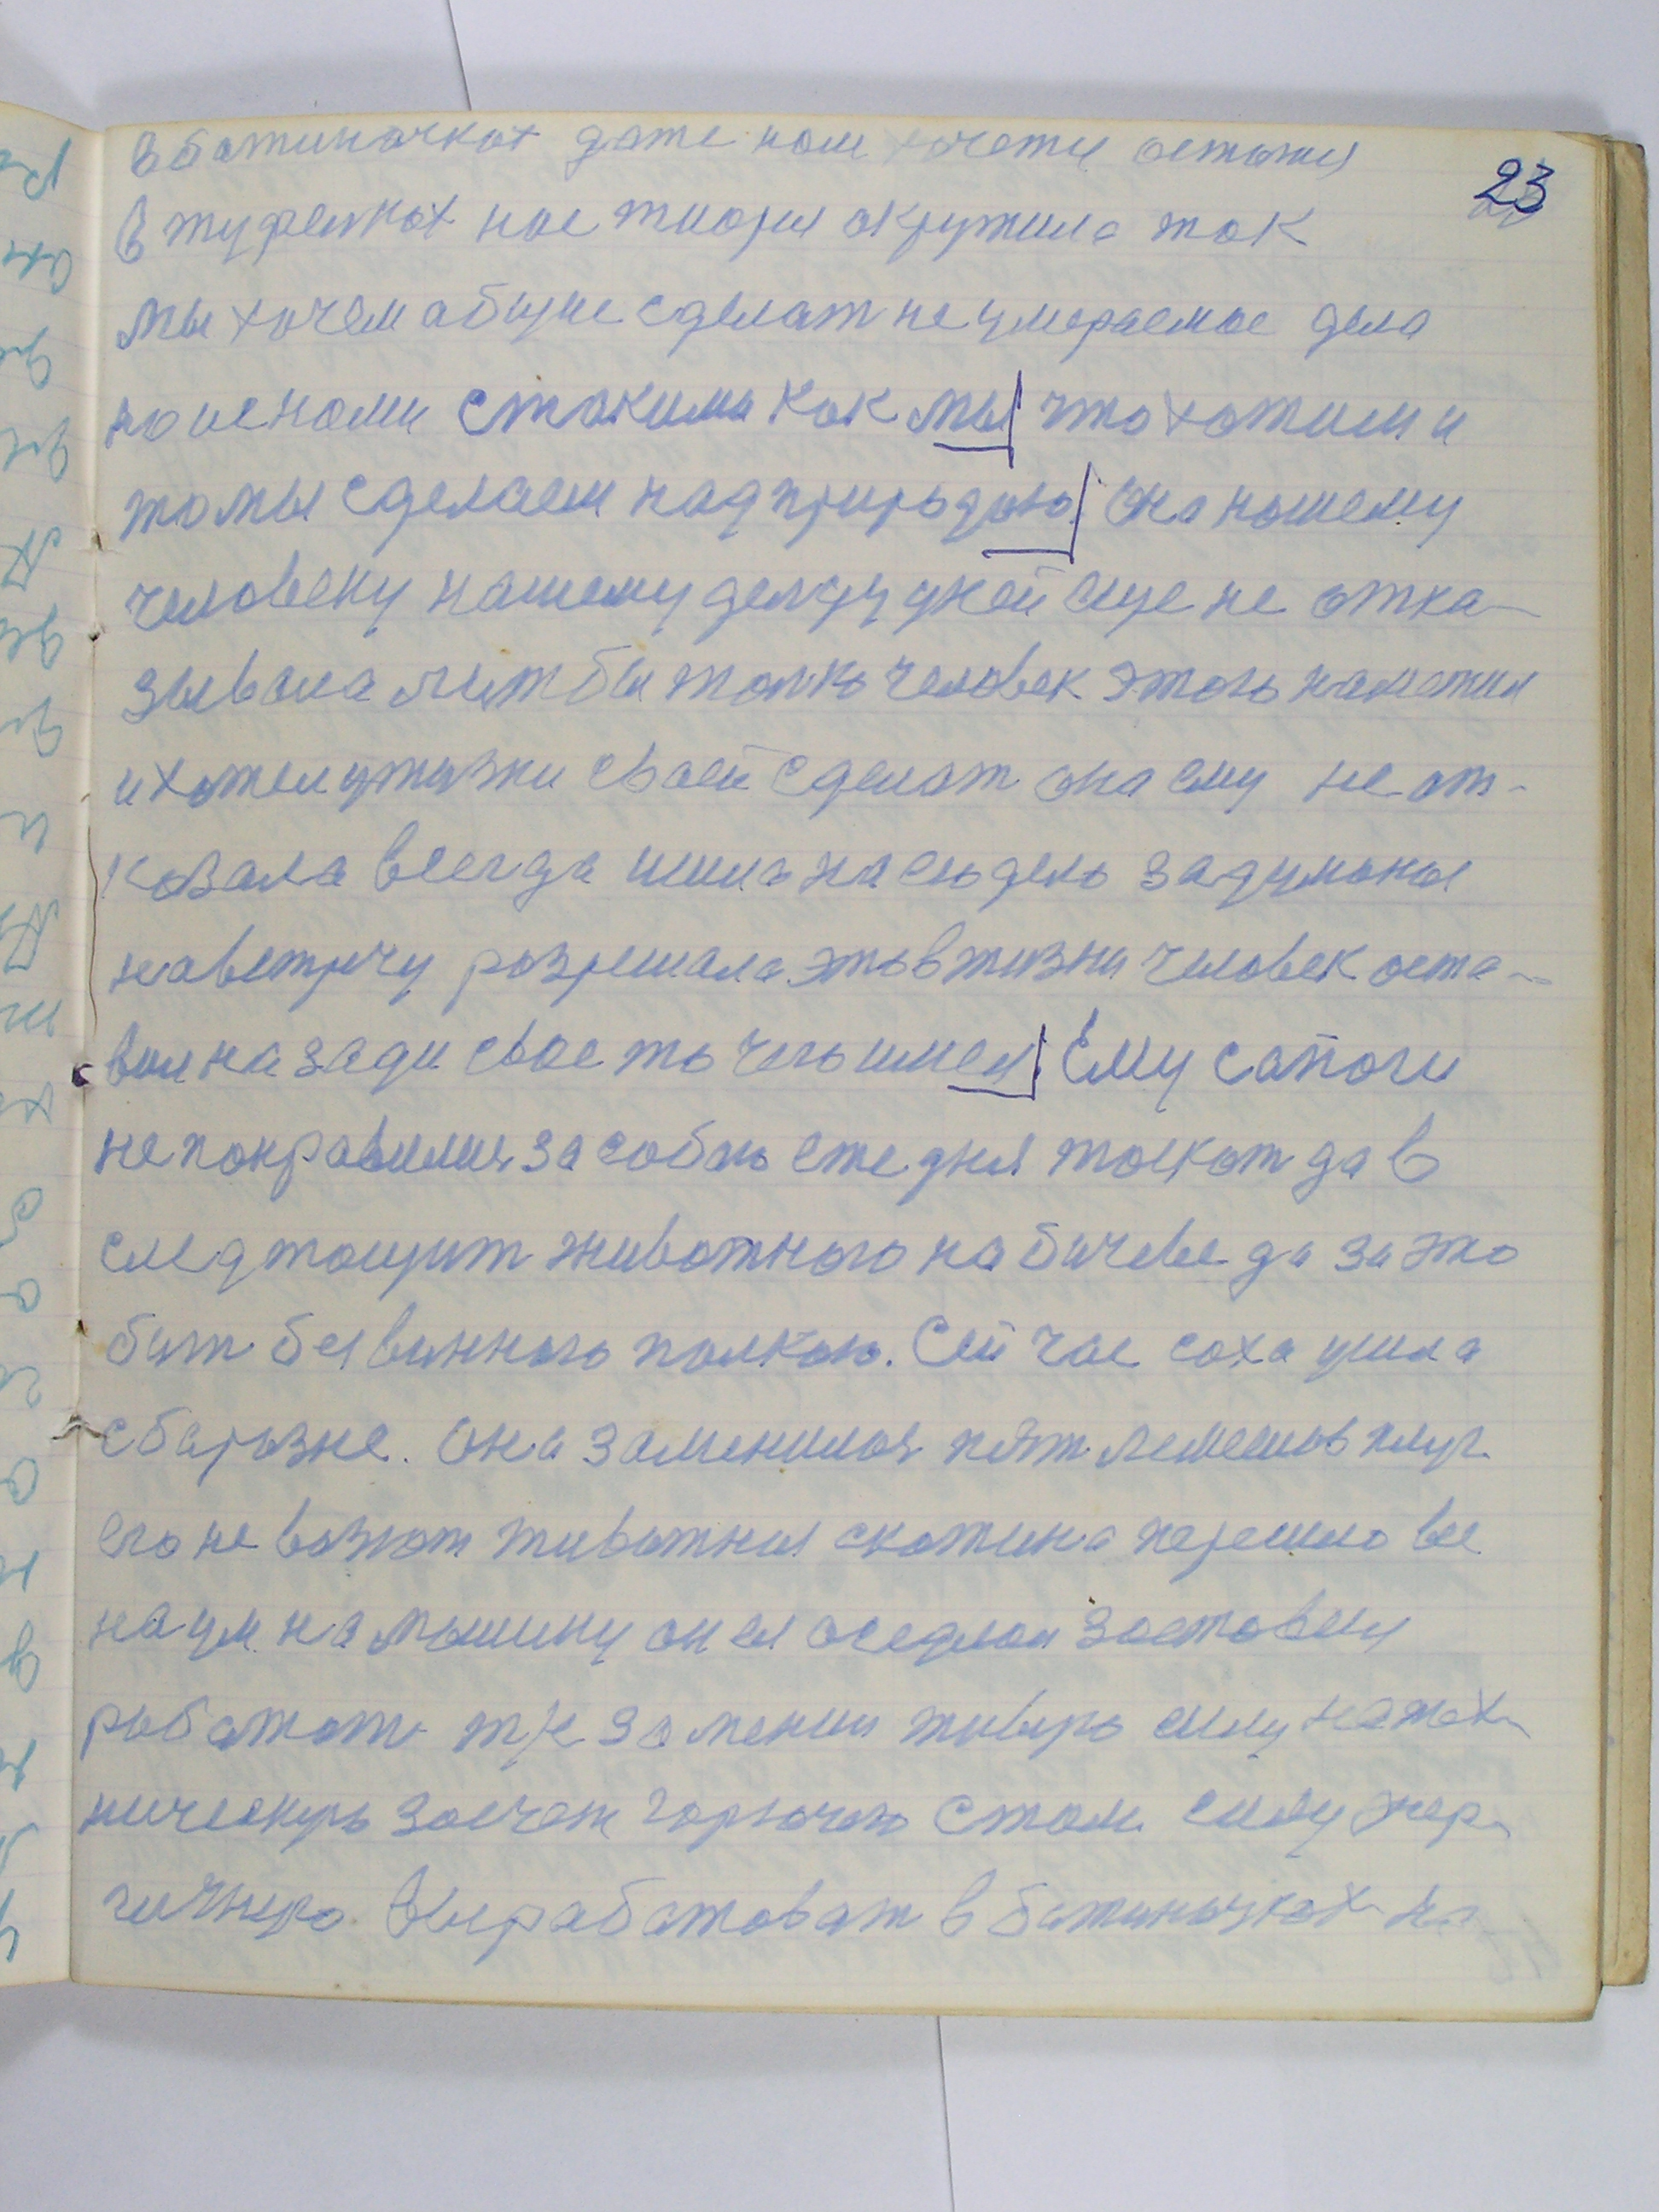 23
в батиначках даже нам хочется остатся
в туфельках нас тиория окружила так
мы хочем абщие сделат не умераемое дела
но не нами стакими как мы что хотим и
то мы сделаем над природою Она нашему
человеку нашему делу уней еще не отка-
зывала лиш бы толко человек этого наметил
и хотел у жизни своей сделат она ему не от-
казала всегда шила на его дело задуманое
наветречу разрешала это в жизни человек оста-
вил назади свое то чего имел Ему сапоги
не понравились за собою ежедня таскат да в
след тащит животного на бичеве да за это
бит безвинного палкою. Сей час соха ушла
с барозне. Она заменилась пят лемешов плуг
его не возют животная скотина перешло все
на ум на машину он ея оседлал заставил
работат т/к заменил живую силу на меха-
ническую засчет горючего стал силу энер-
гичную Вырабатоват в батиначках на